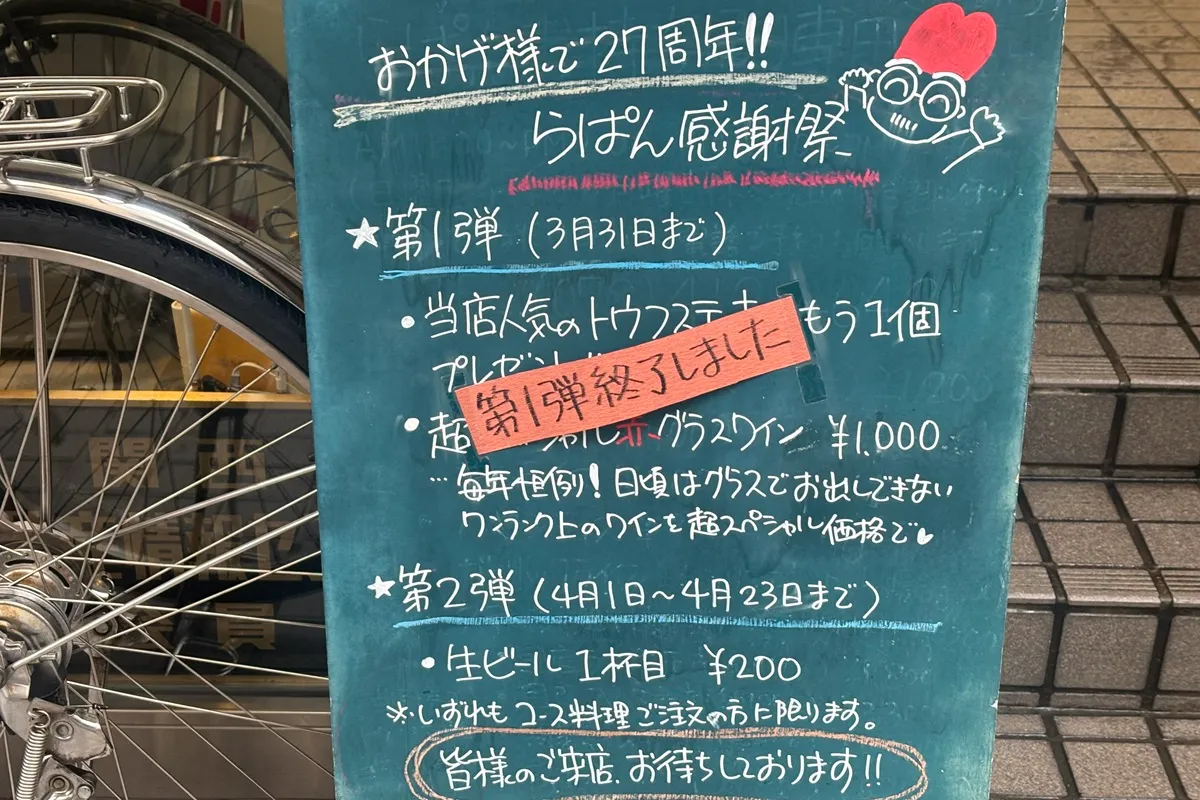 おかげ様で27周年!!
らぱん感謝祭
★第1弾(3月31日まで)
・当店人気のトウフステーキ もう1個
プレゼント
第1弾終了しました
・超 赤グラスワイン ¥1,000
…毎年恒例!日頃はグラスでお出しできない
ワンランク上のワインを超スペシャル価格で♥
★第2弾(4月1日~4月23日まで)
・生ビール 1杯目 ¥200
※いずれもコース料理ご注文の方に限ります。
皆様のご来店、お待ちしております!!
関西
員